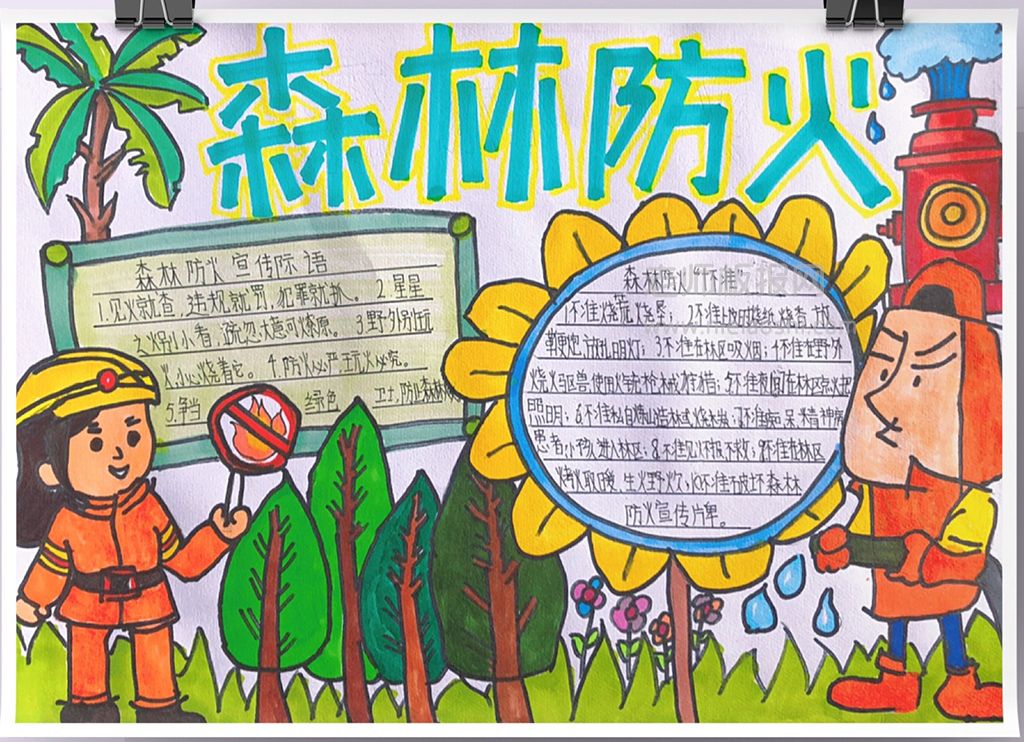 森林防火
森林防火宣传标语
1.见火就查，违规就罚，犯罪就抓。 2.星星
之火别小看，疏忽大意可燎原。 3.野外别玩
火，小心烧着它。 4.防火必严，玩火必究。
5.争当 绿色 卫士，防止森林
森林防火“十不准”
1不准烧荒烧 ；2不准上坟烧纸、烧香、放
鞭炮、放孔明灯；3不准在林区吸烟；4不准在野外
烧火驱兽，使用火 枪械狩猎；5不准夜间在林区点火把
照明；6不准私自炼山造林或烧木炭；7不准痴、呆、精神病
患者、小孩进入林区；8不准见火不报不救；9不准在林区
烤火取暖、生火野炊；10不准破坏森林
防火宣传牌。